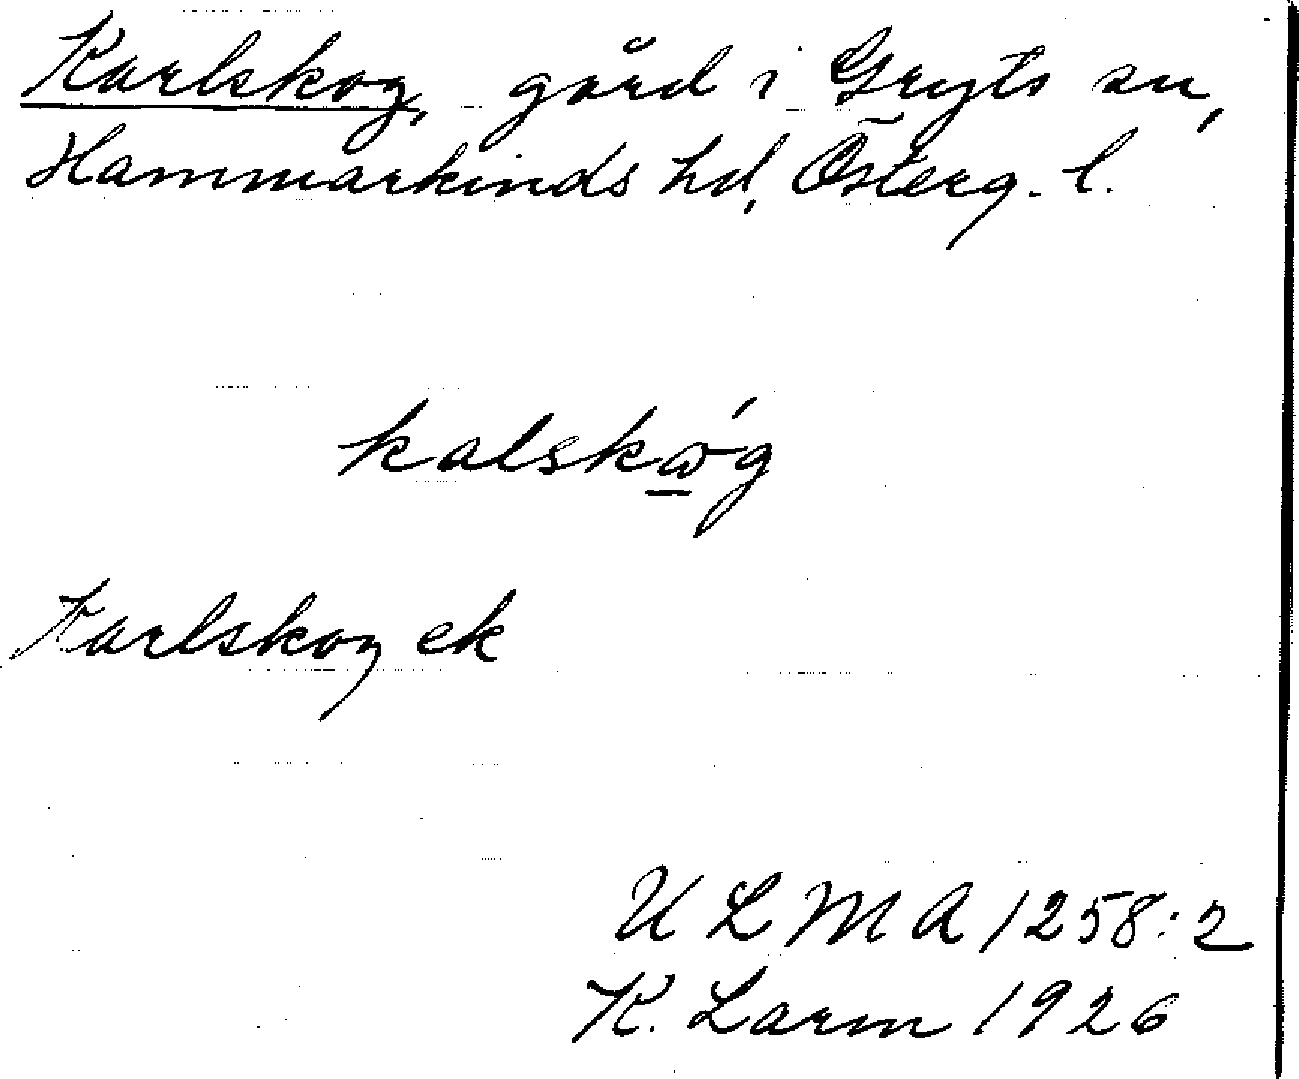 Karlskog, gård i Gryts sn,
Hammarkinds hd, Österg. l.
kalskώ̱g
Karlskog ek
ULMA 1258:2
K. Larm 1926